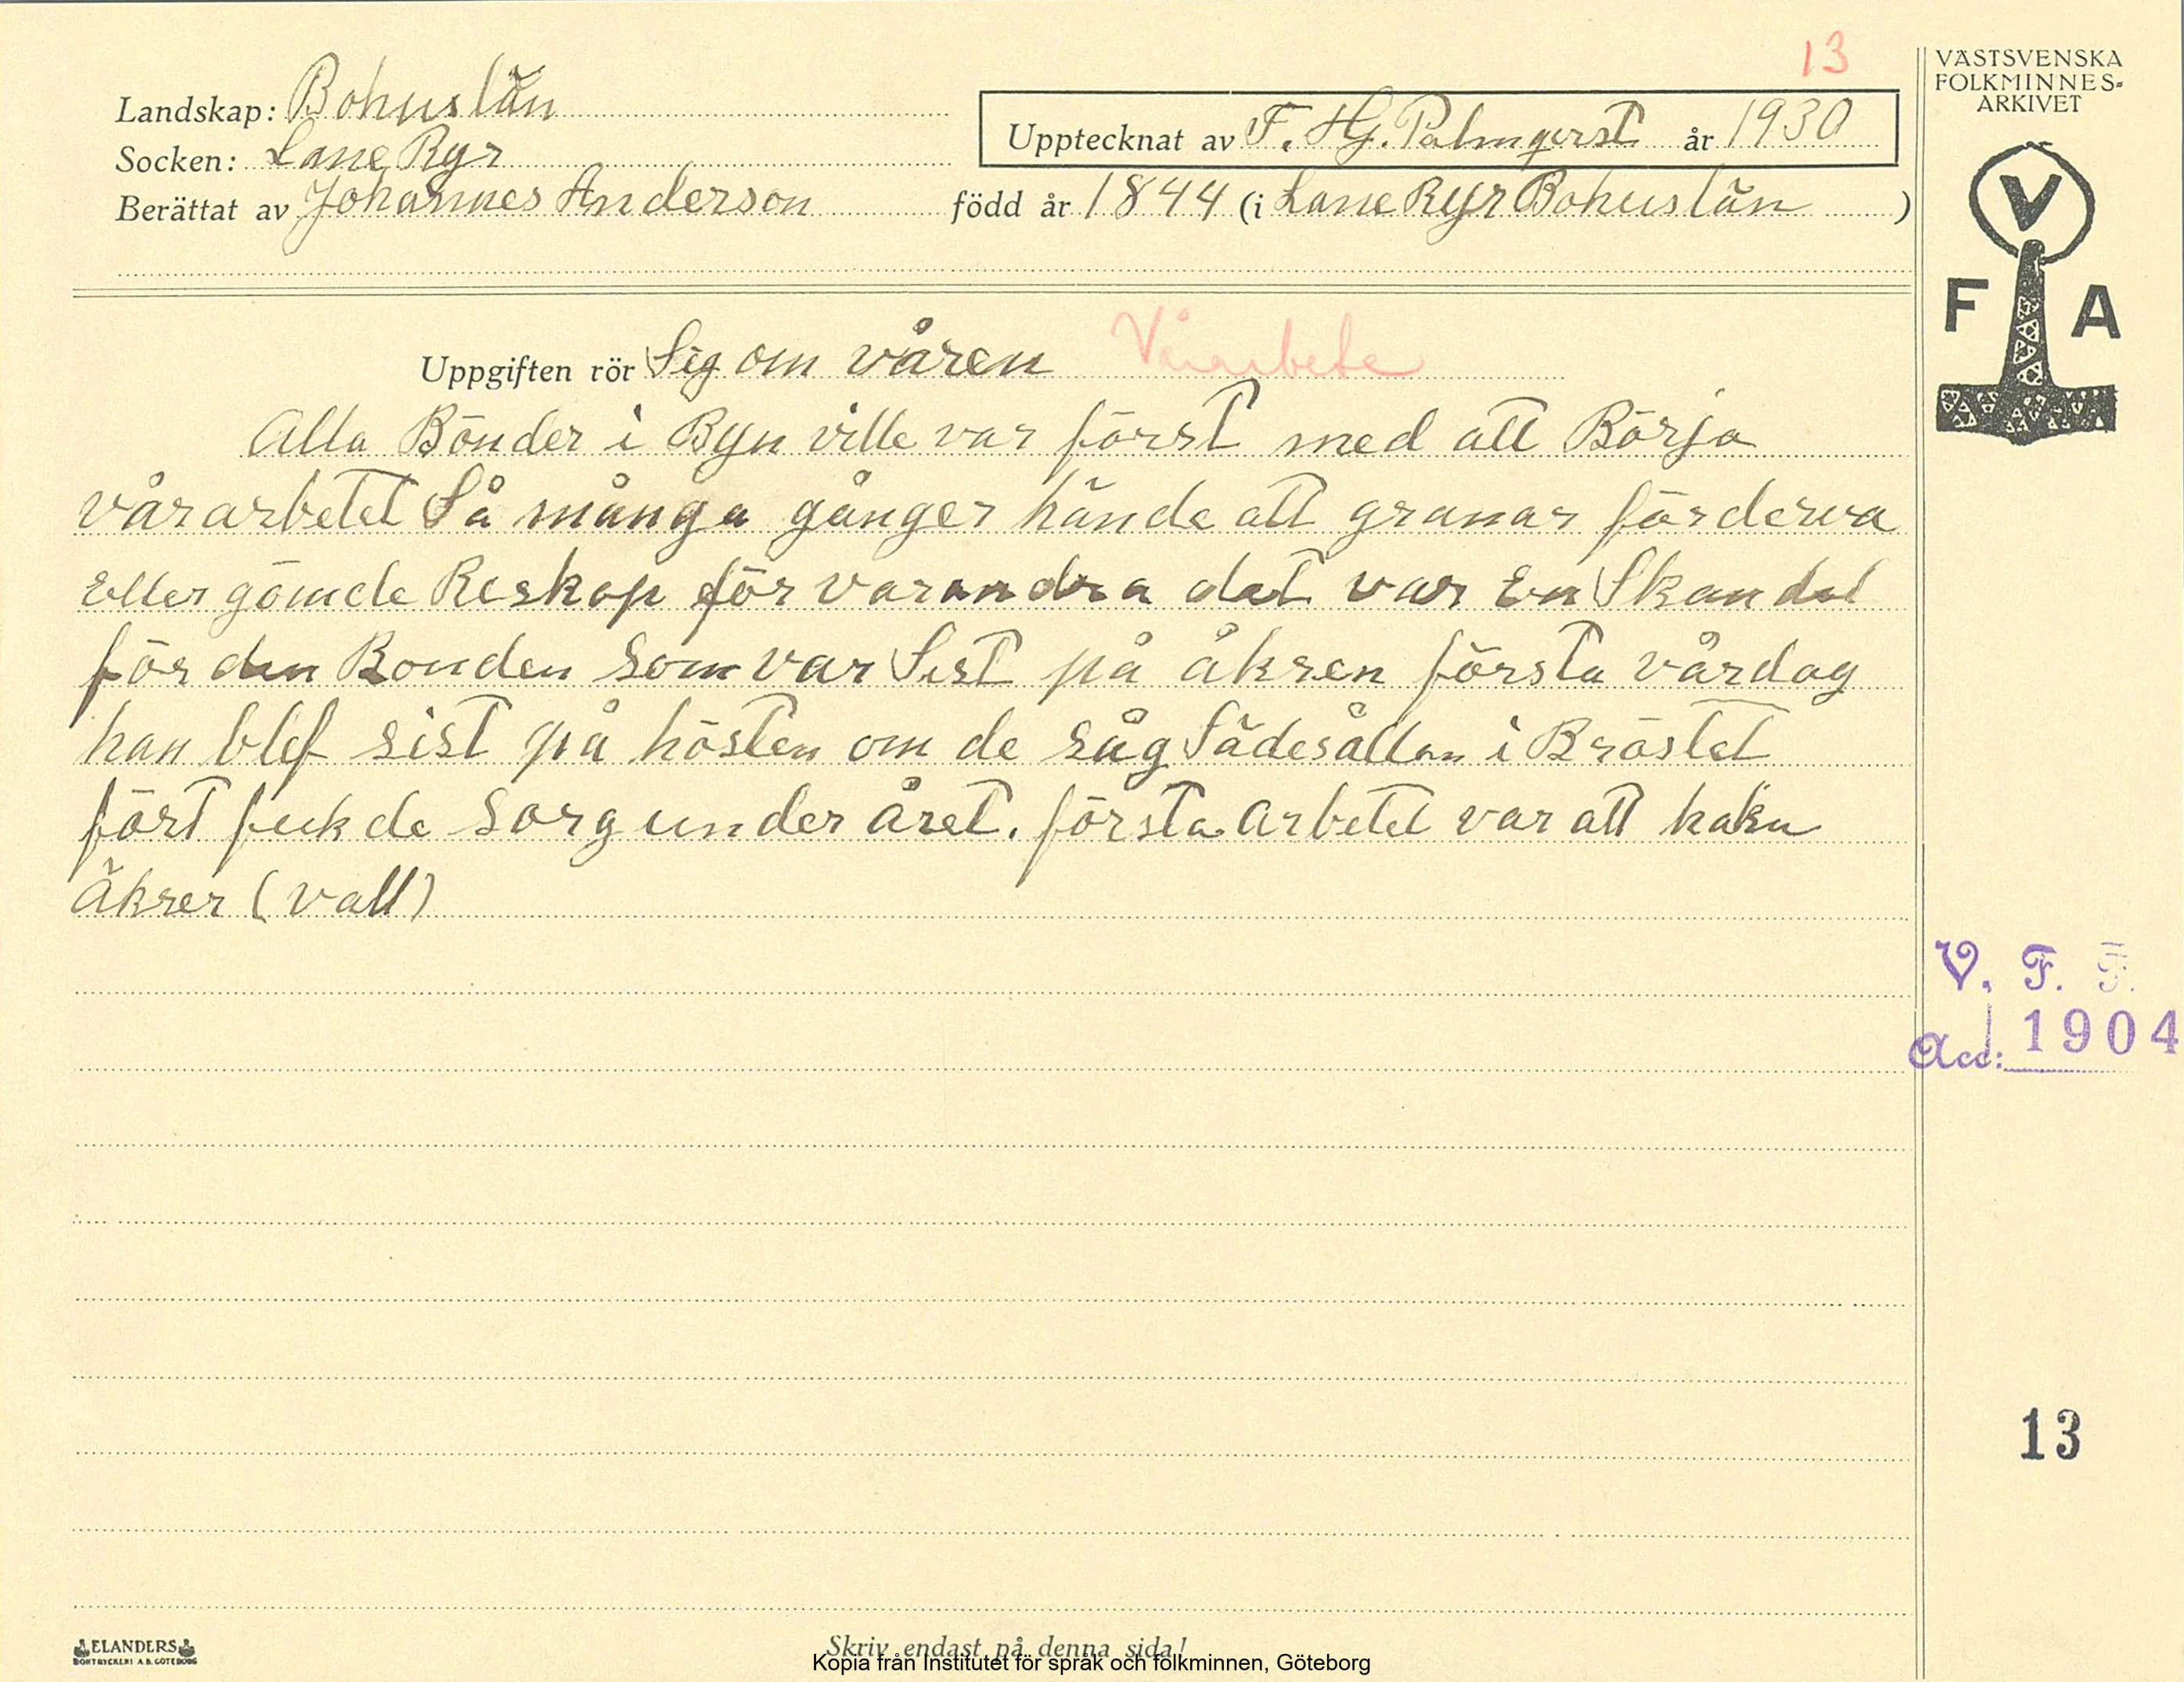 13
VÄSTSVENSKA
FOLKMINNES-
ARKIVET
Landskap: Bohuslän
Upptecknat av F. Hj. Palmqvist år 1930
Socken: Lane Ryr
Berättat av Johannes Anderson född år 1844 (i Lane Ryr Bohuslän )
V
F A
Uppgiften rör Sig om våren Vårarbete
Alla Bönder i Byn ville var först med att Börja
vårarbetet Så många gånger hände att granar förderva
Eller gömde Reskap för varandra det var En Skandal
för den Bonden Som var Sist på åkren första vårdag
han blef sist på hösten om de såg Sädesällan i Bröstet
fört feck de Sorg under året. första Arbetet var att haka
Åkrer (vall)
V. F. F.
Acc: 1904
13
ELANDERS
BOKTRYCKERI A.B. GÖTEBORG
Skriv endast på denna sida!
Kopia från Institutet för språk och folkminnen, Göteborg